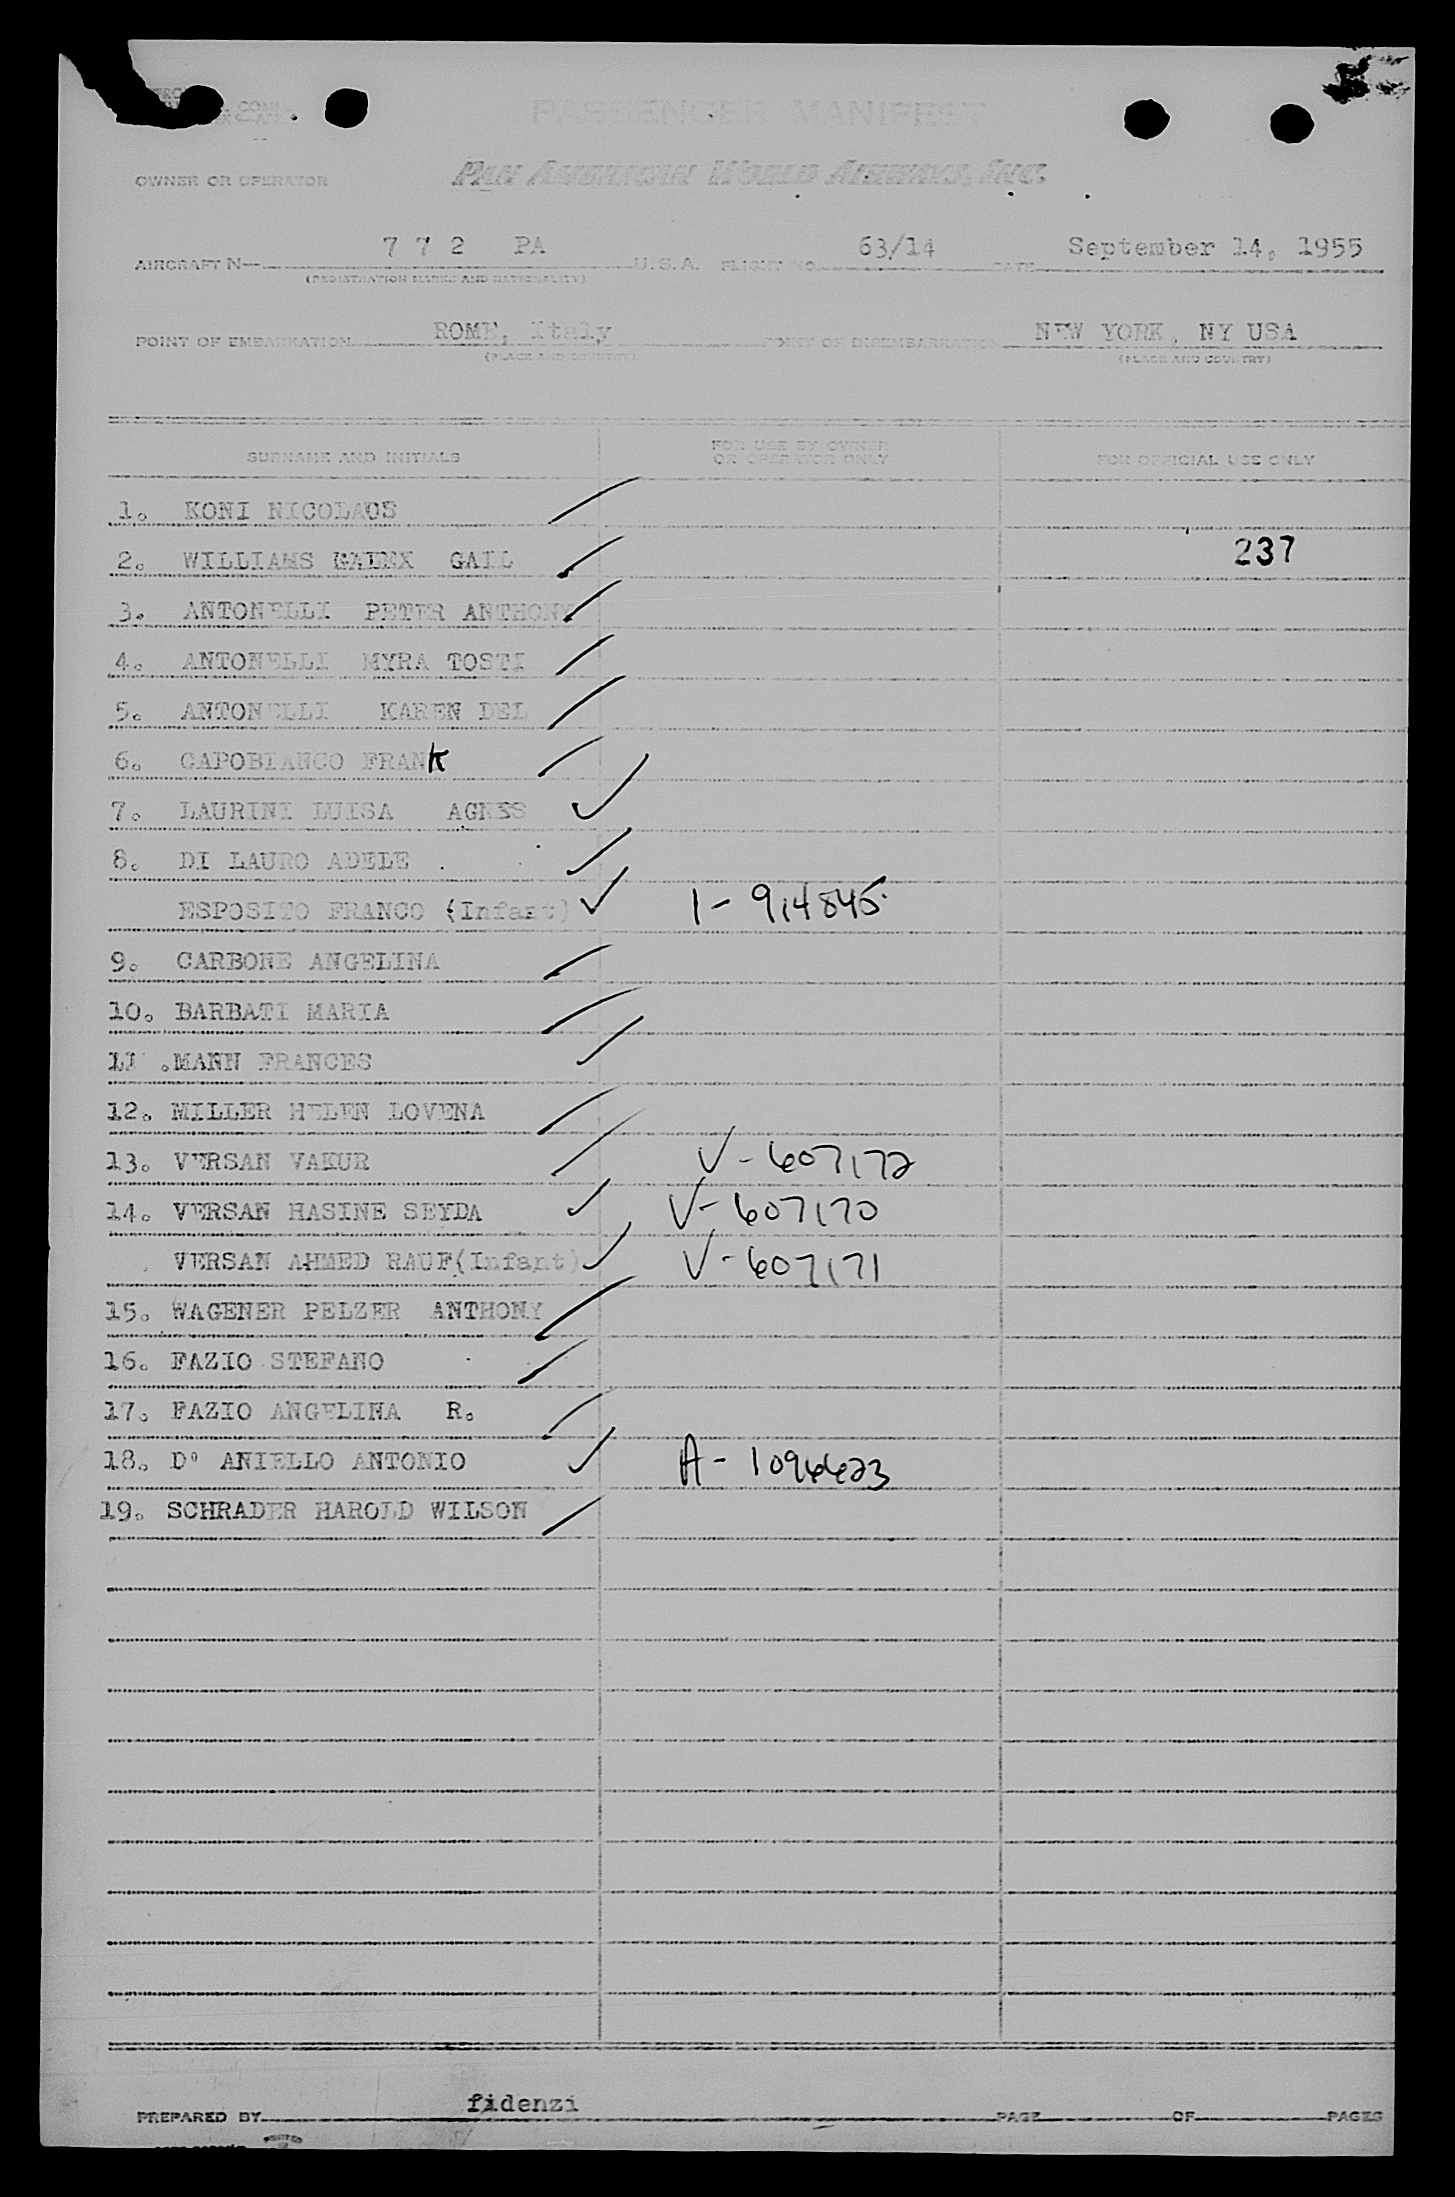 PASSENGER MANIFEST
OWNER OR OPERATOR PAN AMERICAN WORLD AIRWAYS, INC.
AIRCRAFT N— 7 7 2 PA U.S.A. FLIGHT NO. 63/14 DATE September 14, 1955
(REGISTRATION MARKS AND NATIONALITY)
POINT OF EMBARKATION ROME, Italy POINT OF DISEMBARKATION NEW YORK, NY USA
(PLACE AND COUNTRY) (PLACE AND COUNTRY)
SURNAME AND INITIALS FOR USE BY OWNER OR OPERATOR ONLY FOR OFFICIAL USE ONLY
1. KONI NICOLAOS
2. WILLIAMS GAIL 237
3. ANTONELLI PETER ANTHONY
4. ANTONELLI MYRA TOSTI
5. ANTONELLI KAREN DEL
6. CAPOBIANCO FRANK
7. LAURINI LUISA AGNES
8. DI LAURO ADELE
ESPOSITO FRANCO (Infant) ✓ I-914845
9. CARBONE ANGELINA
10. BARBATI MARIA
11 .MANN FRANCES
12. MILLER HELEN LOVENA
13. VERSAN VAKUR V-607172
14. VERSAN HASINE SEYDA V-607170
VERSAN AHMED RAUF(Infant) V-607171
15. WAGENER PELZER ANTHONY
16. FAZIO STEFANO
17. FAZIO ANGELINA R.
18. D' ANIELLO ANTONIO A-1096623
19. SCHRADER HAROLD WILSON
PREPARED BY fidenzi PAGE OF PAGES